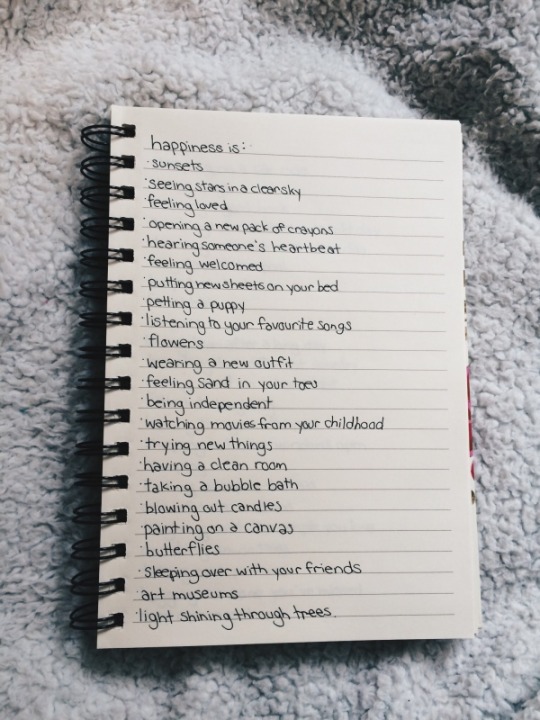 happiness is:
·sunsets
·seeing stars in a clear sky
·feeling loved
·opening a new pack of crayons
·hearing someone's heartbeat
·feeling welcomed
·putting new sheets on your bed
·petting a puppy
·listening to your favourite songs
·flowers
·wearing a new outfit
·feeling sand in your toes
·being independent
·watching movies from your childhood
·trying new things
·having a clean room
·taking a bubble bath
·blowing out candles
·painting on a canvas
·butterflies
·sleeping over with your friends
·art museums
·light shining through trees.